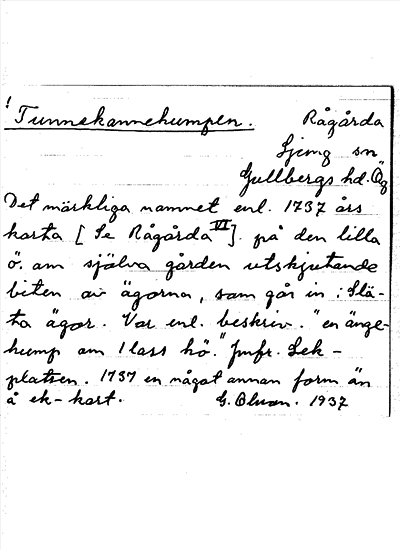 ! Tunnekannehumpen. Rågårda
Ljung sn
Gullbergs hd. Ög
Det märkliga namnet enl. 1737 års
karta [Se Rågårda VI] på den lilla
ö. om själva gården utskjutande
biten av ägorna, som går in i Slä-
ta ägor. Var enl. beskriv. "en änge-
hump om 1 lass hö." Jmfr. Lek-
platsen. 1737 en något annan form än
å ek-kart. G. Olson. 1937